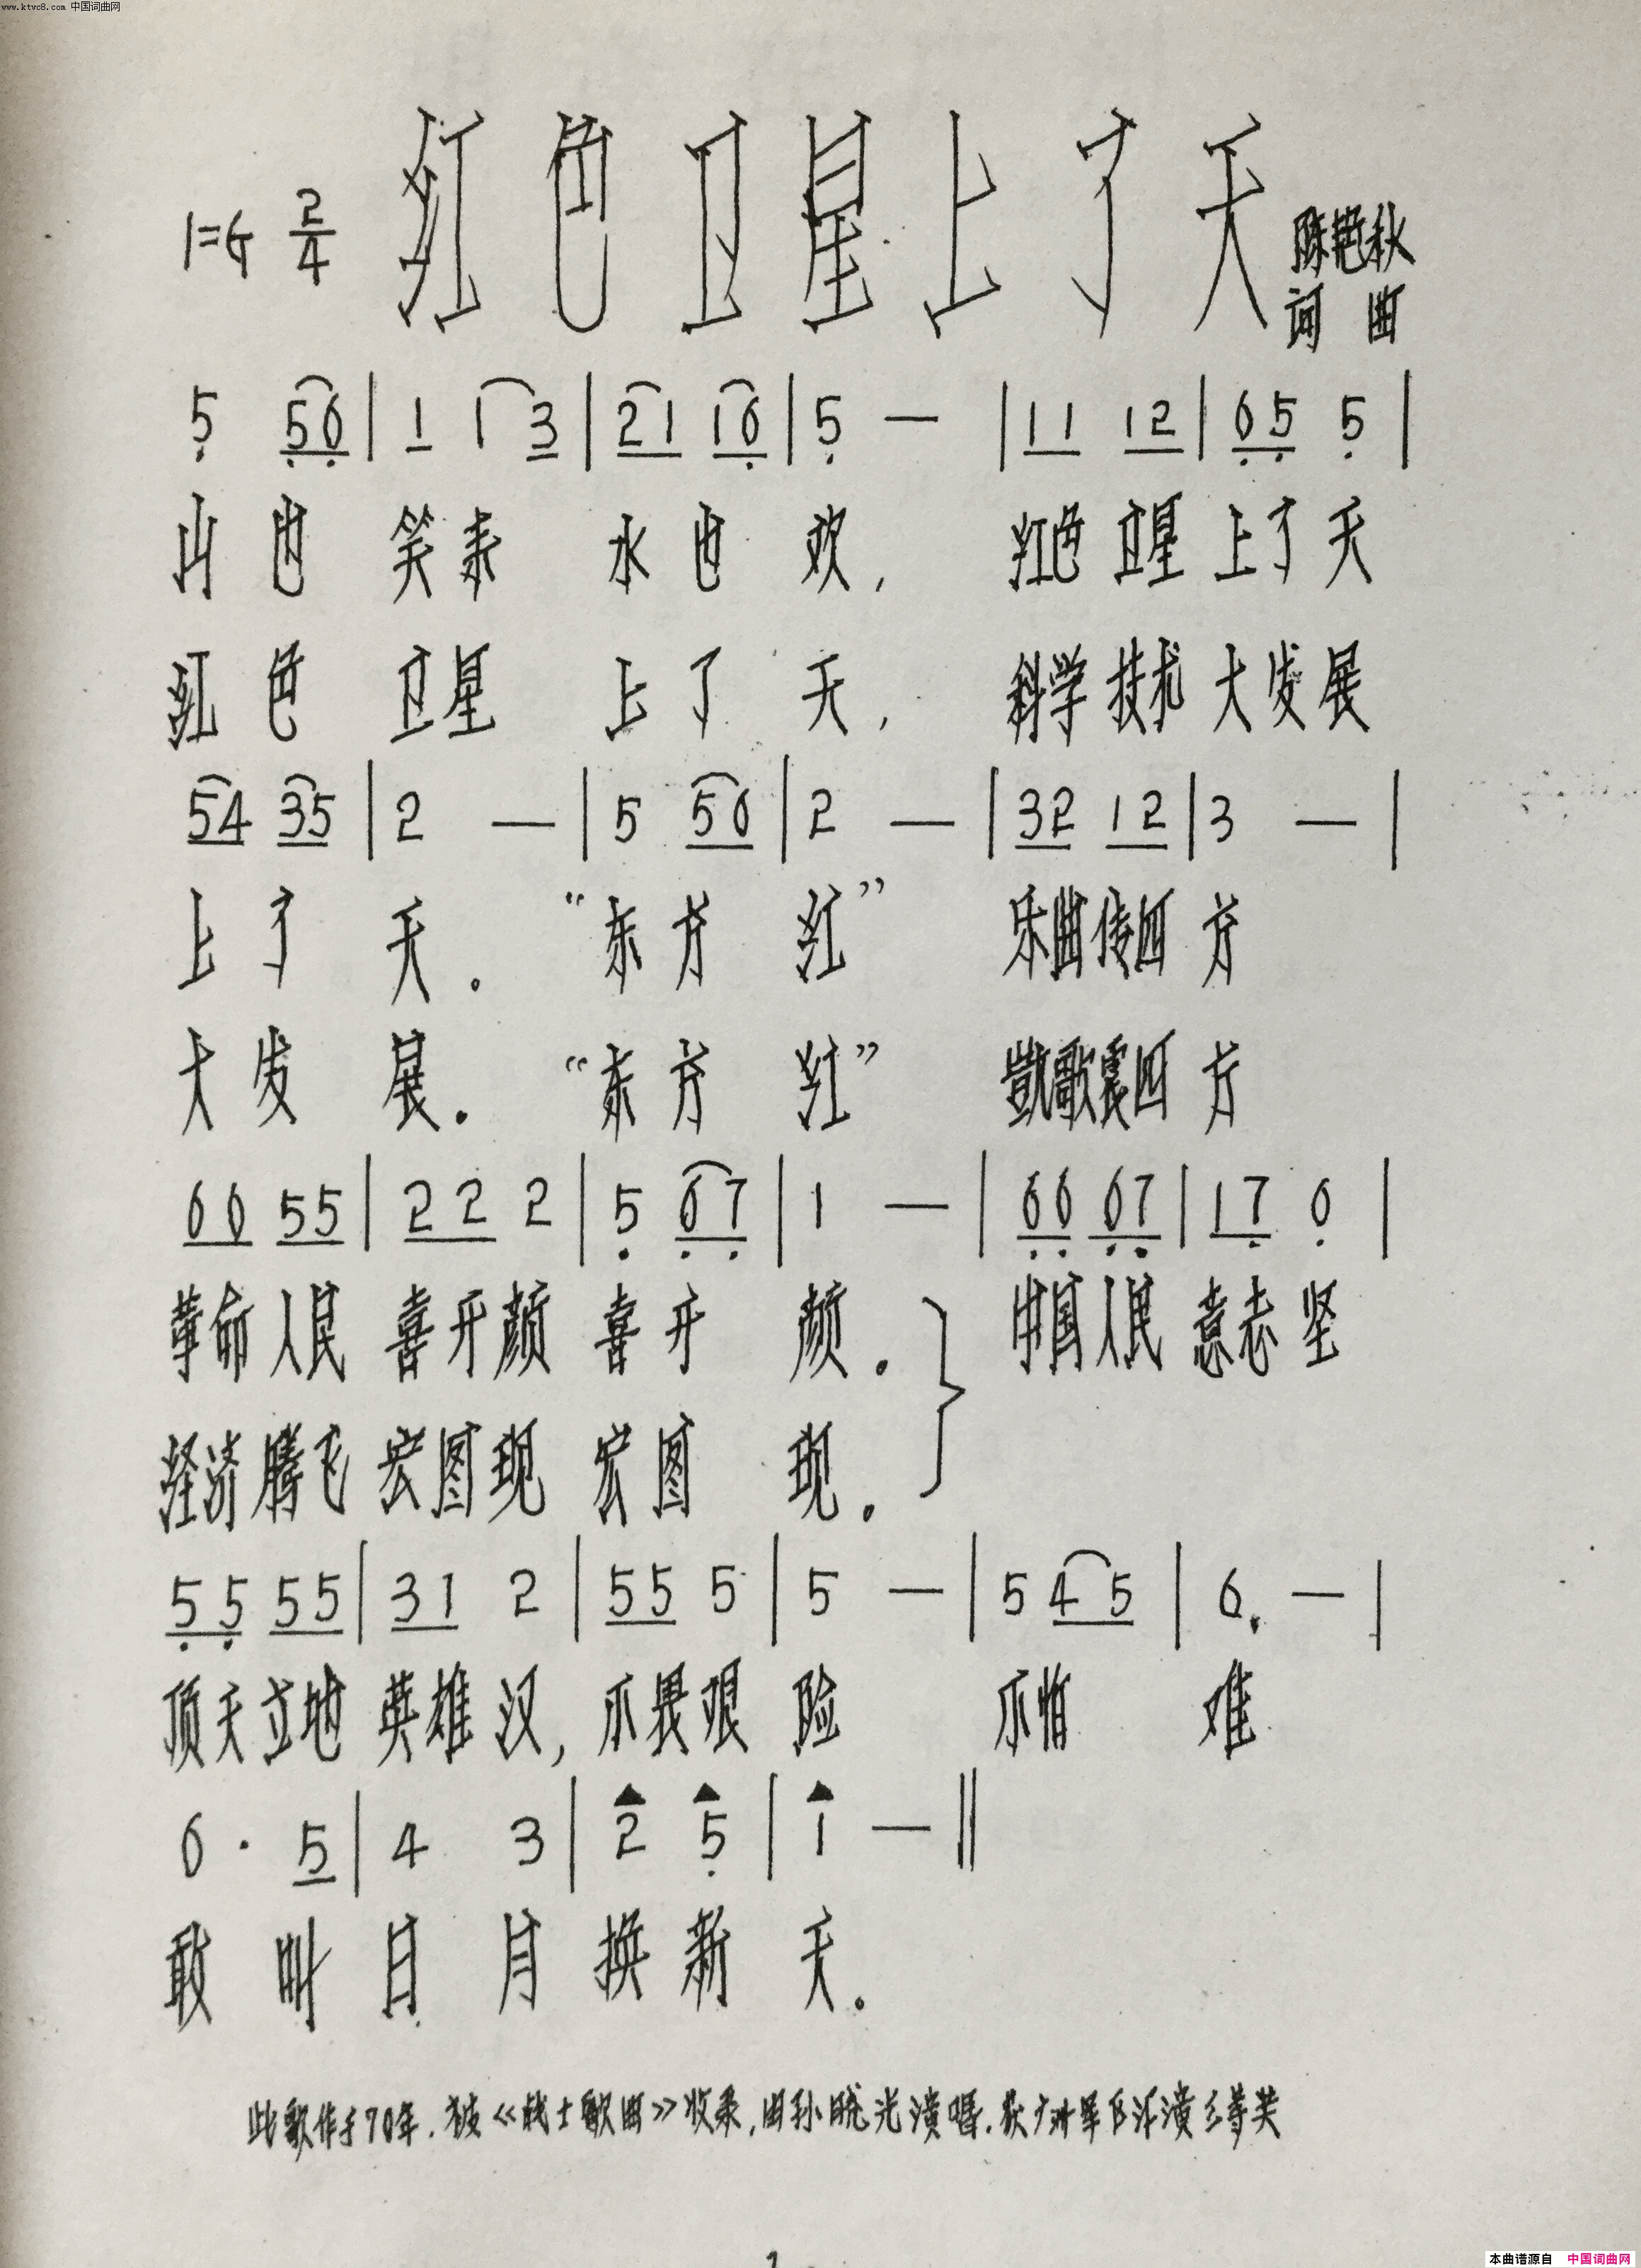 www.ktvc8.com 中国词曲网
红色卫星上了天
1=G 2/4
陈艳秋
词 曲
5 56 | 1 1 3 | 21 16 | 5 — | 11 12 | 65 5 |
山 也 笑来 水 也 欢, 红色 卫星 上了 天
红 色 卫星 上 了 天, 科学 技术 大发展
54 35 | 2 — | 5 56 | 2 — | 32 12 | 3 — |
上 了 天. “东 方 红” 乐曲传四 方
大 发 展. “东 方 红” 凯歌震四 方
66 55 | 22 2 | 5 67 | 1 — | 66 67 | 17 6 |
革命人民 喜开颜 喜开 颜. 中国人民 意志 坚
经济腾飞 宏图现 宏图 现.
55 55 | 31 2 | 55 5 | 5 — | 5 45 | 6. — |
顶天立地 英雄 汉, 不畏艰 险 不怕 难
6 · 5 | 4 3 | 2 5 | 1 — ‖
敢 叫 日 月 换 新 天.
此歌作于70年.被《战士歌曲》收录,由孙晓光演唱.获广州军区汇演三等奖
1
本曲谱源自 中国词曲网